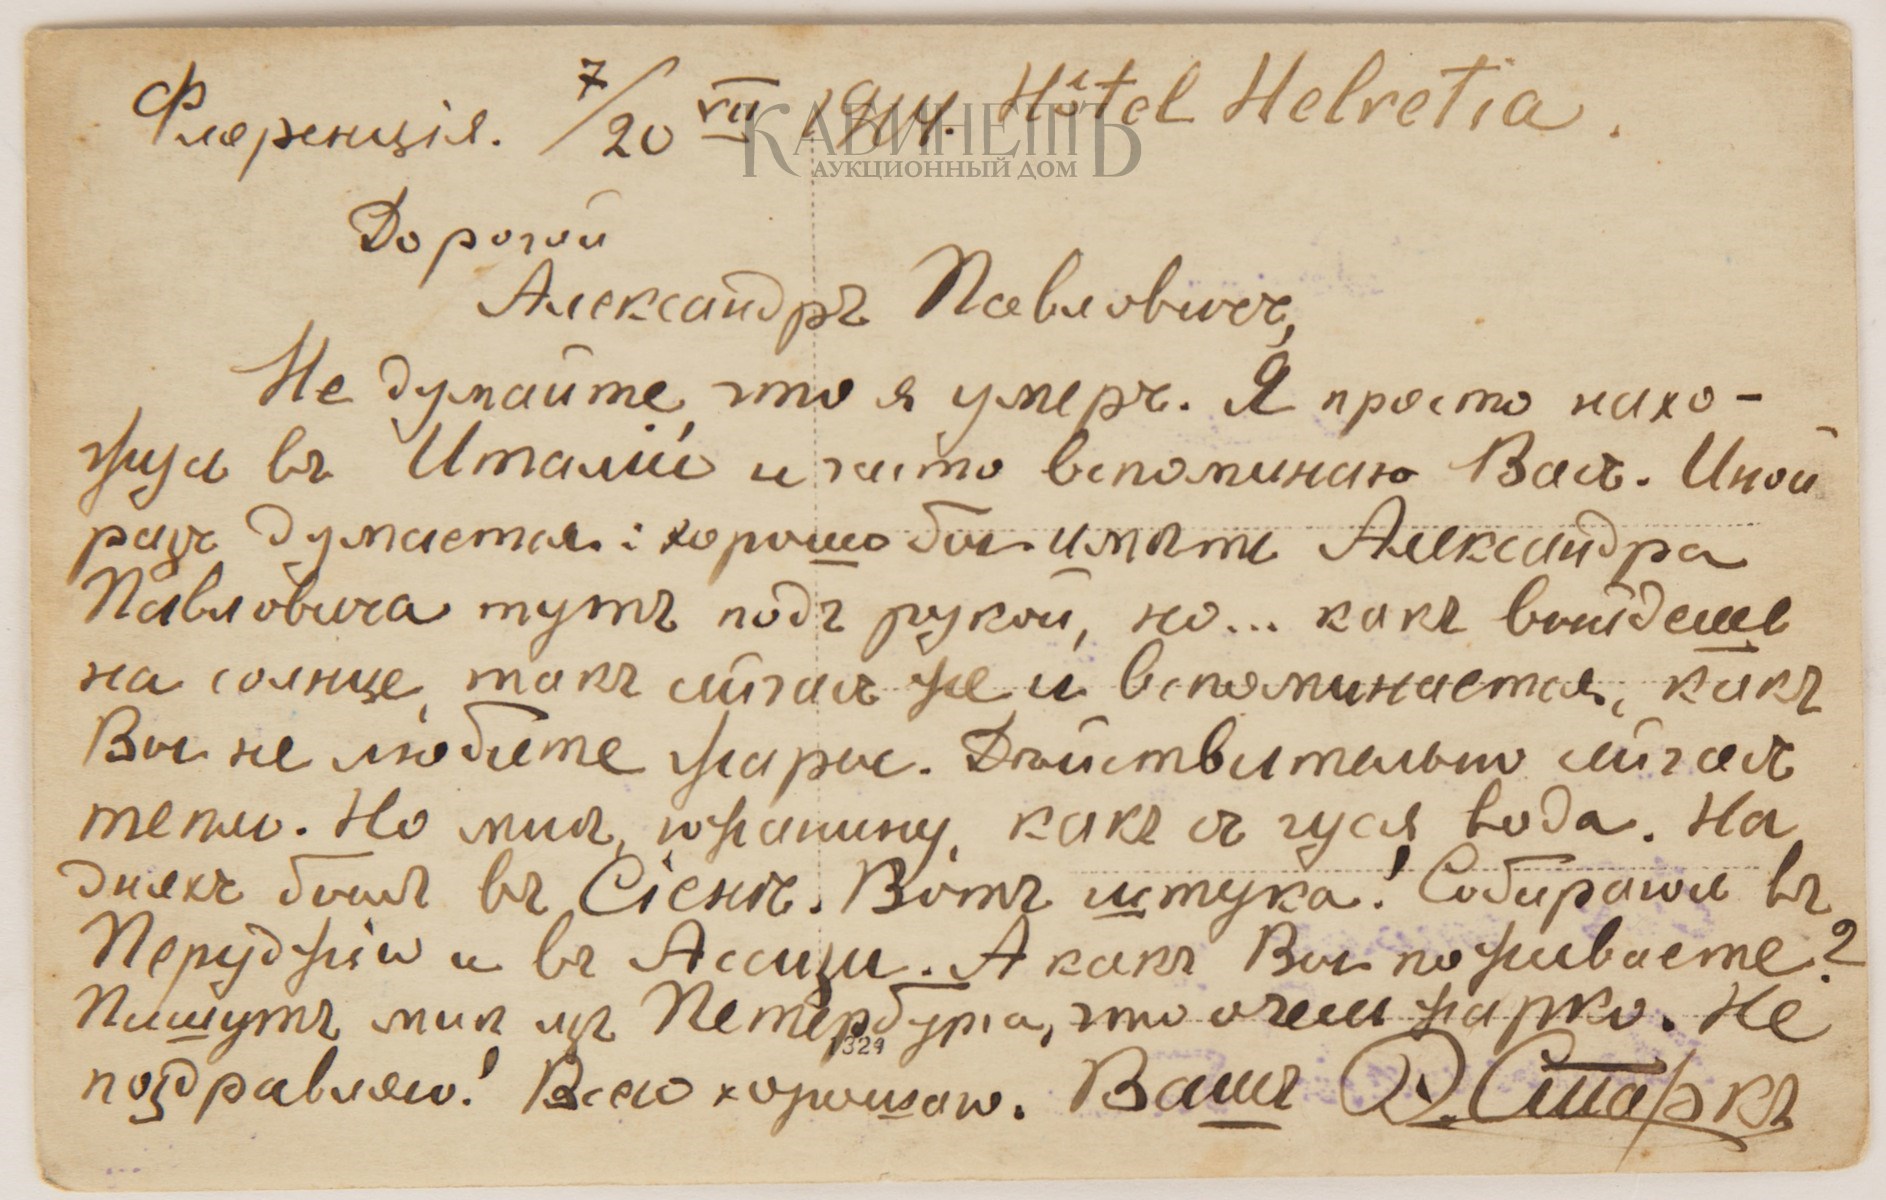 Флоренція. 7/20 VII 1914. Hôtel Helvetia.
КАБИНЕТЪ
АУКЦИОННЫЙ ДОМ
Дорогой
Александръ Павловичъ,
Не думайте, что я умеръ. Я просто нахо-
жусь въ Италіи и часто вспоминаю Васъ. Иной
разъ думается: хорошо бы имѣть Александра
Павловича тутъ подъ рукой, но... какъ выйдешь
на солнце, такъ сейчасъ же и вспоминается, какъ
Вы не любите жары. Дѣйствительно сейчасъ
тепло. Но мнѣ, южанину, какъ съ гуся вода. На
дняхъ былъ въ Сіенѣ. Вотъ штука! Собираюсь въ
Перуджію и въ Ассизи. А какъ Вы поживаете?
Пишутъ мнѣ изъ Петербурга, что очень жарко. Не
1329
поздравляю! Всего хорошаго. Вашъ Э. Старкъ